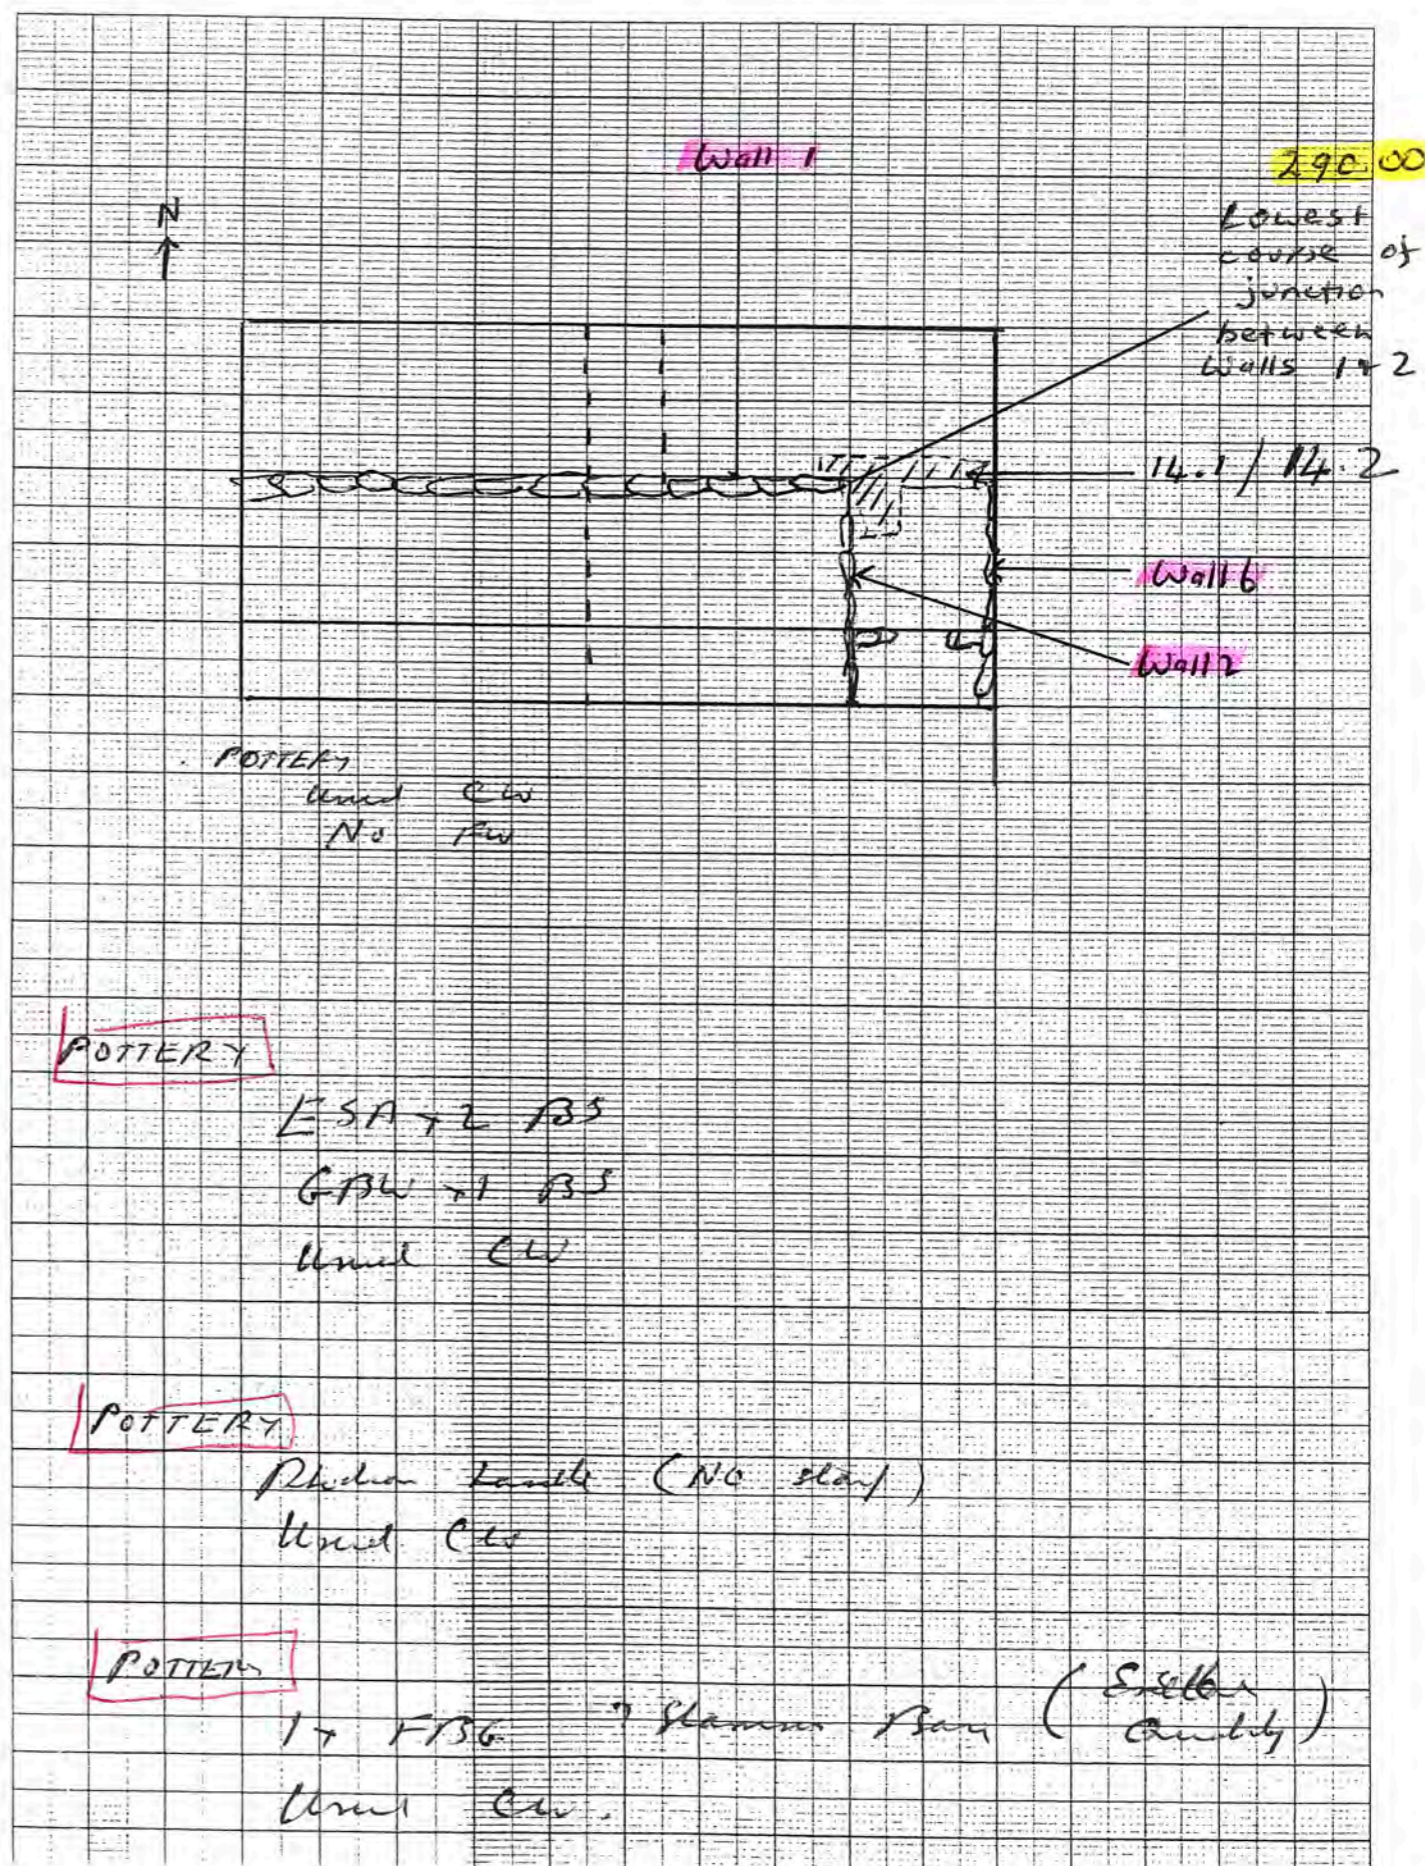 Wall 1
290.00
N
Lowest
course of
junction
between
Walls 1+2
14.1 / 14.2
Wall 6
Wall 2
POTTERY
Usual CW
No FW
POTTERY
ESA x 2 BS
GBW x 1 BS
Usual CW
POTTERY
Rhodian handle (NO stamp)
Usual CW
POTTERY
1 x FBG ? Base (
Quality)
Usual CW.